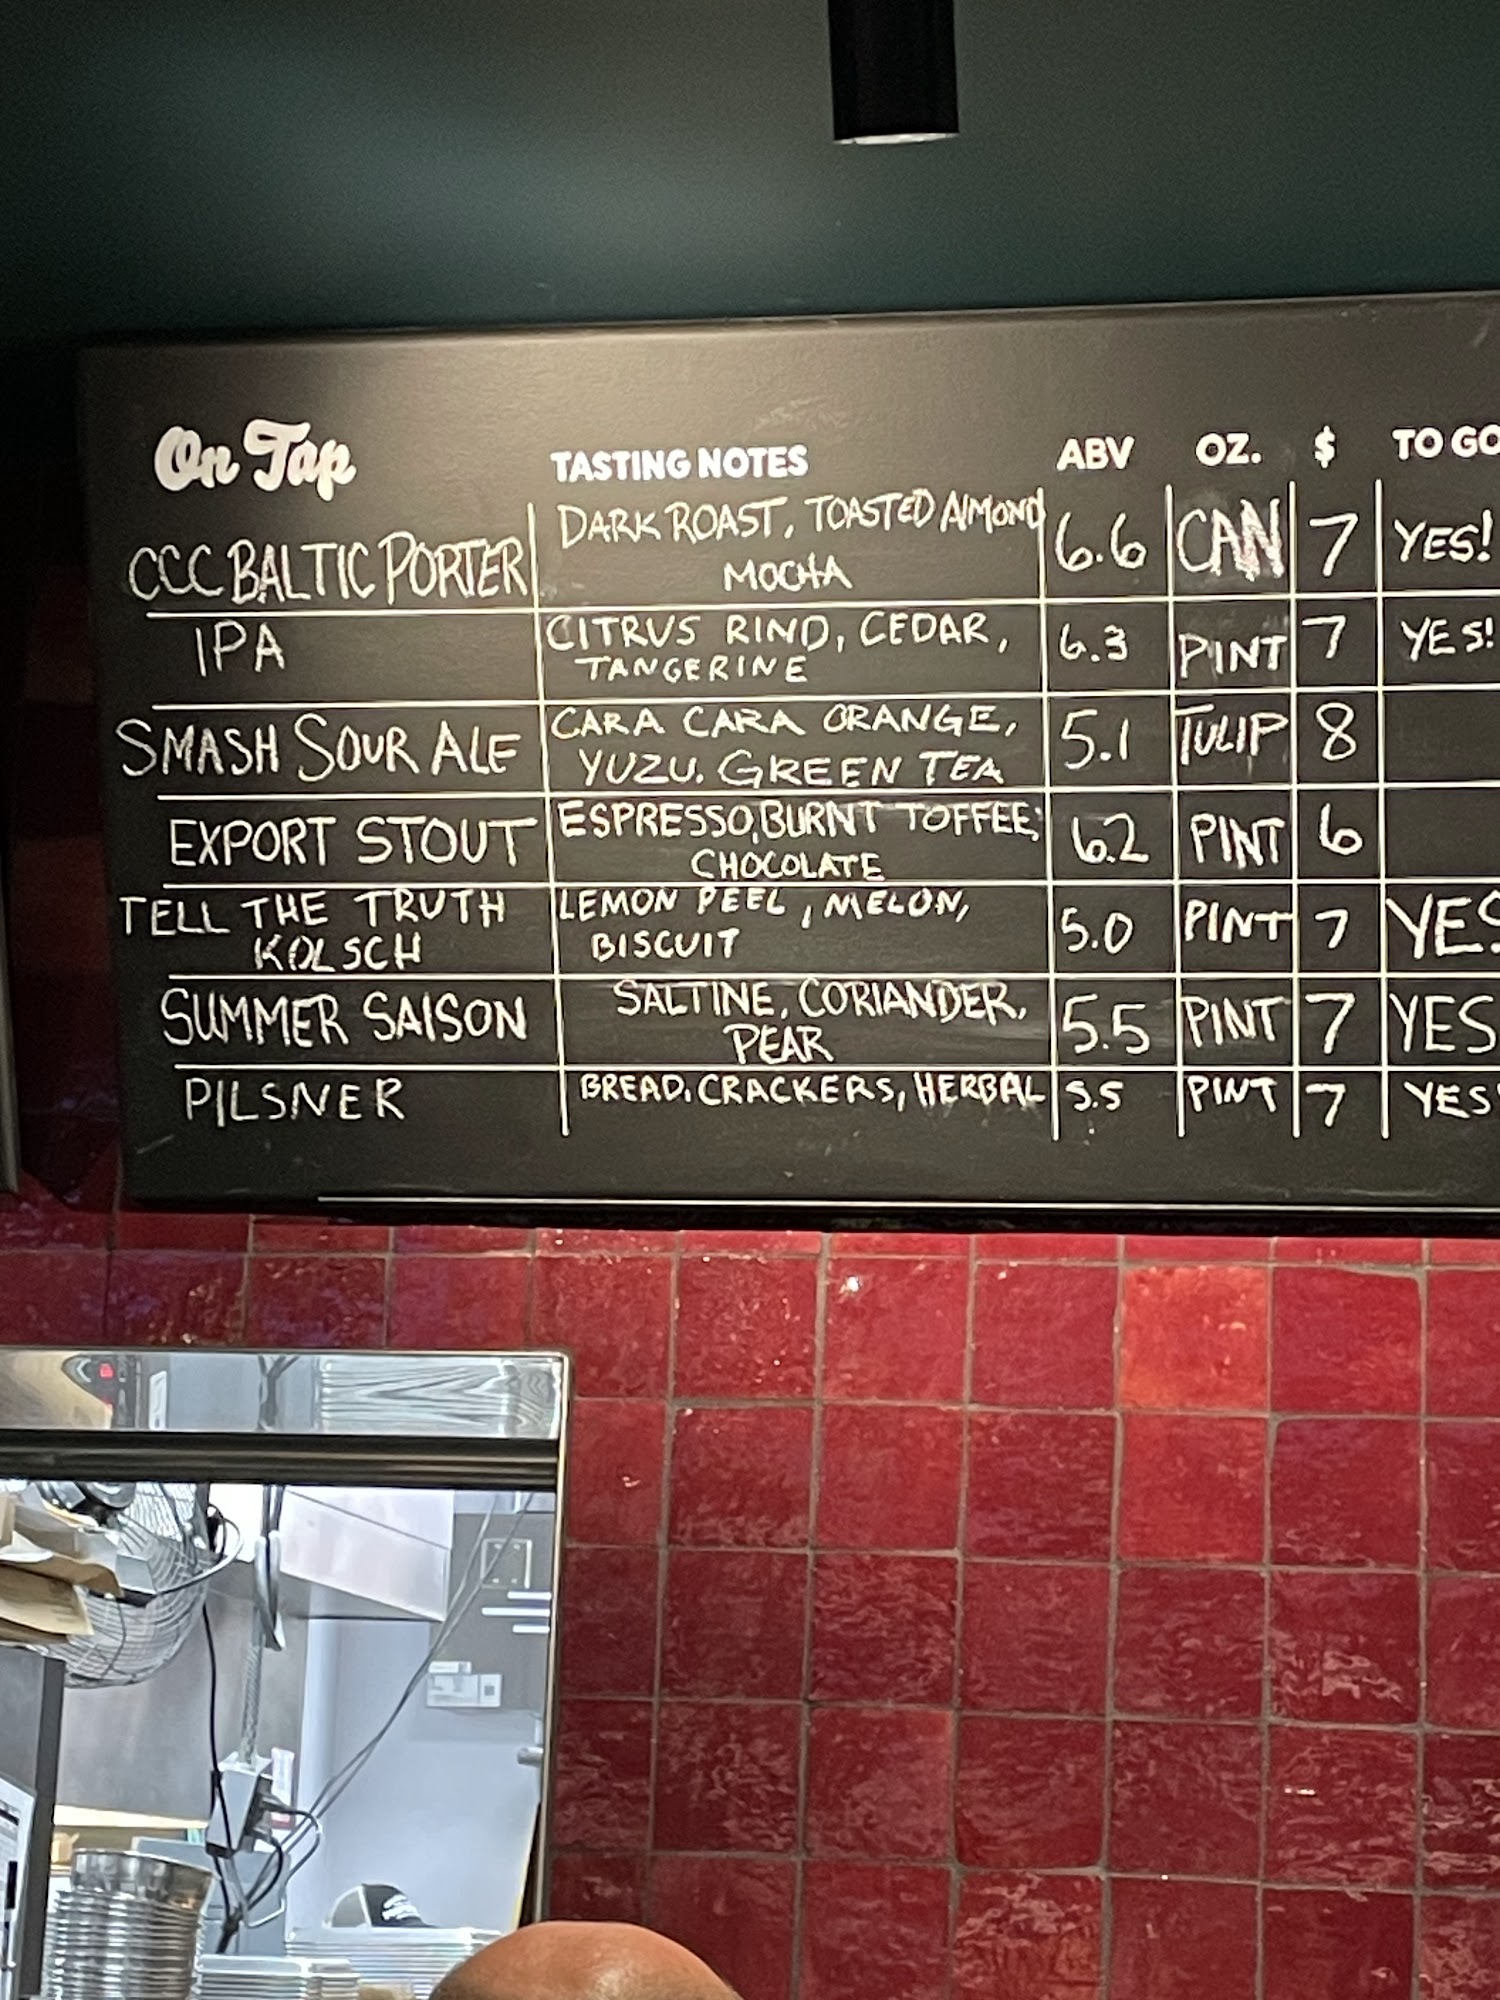 On Tap TASTING NOTES ABV OZ. $ TO GO
CCC BALTIC PORTER DARK ROAST, TOASTED ALMOND 6.6 CAN 7 YES!
MOCHA
IPA CITRUS RIND, CEDAR, 6.3 PINT 7 YES!
TANGERINE
SMASH SOUR ALE CARA CARA ORANGE, 5.1 TULIP 8
YUZU. GREEN TEA
EXPORT STOUT ESPRESSO, BURNT TOFFEE, 6.2 PINT 6
CHOCOLATE
TELL THE TRUTH LEMON PEEL, MELON, 5.0 PINT 7 YES
KOLSCH BISCUIT
SUMMER SAISON SALTINE, CORIANDER, 5.5 PINT 7 YES
PEAR
PILSNER BREAD, CRACKERS, HERBAL 5.5 PINT 7 YES